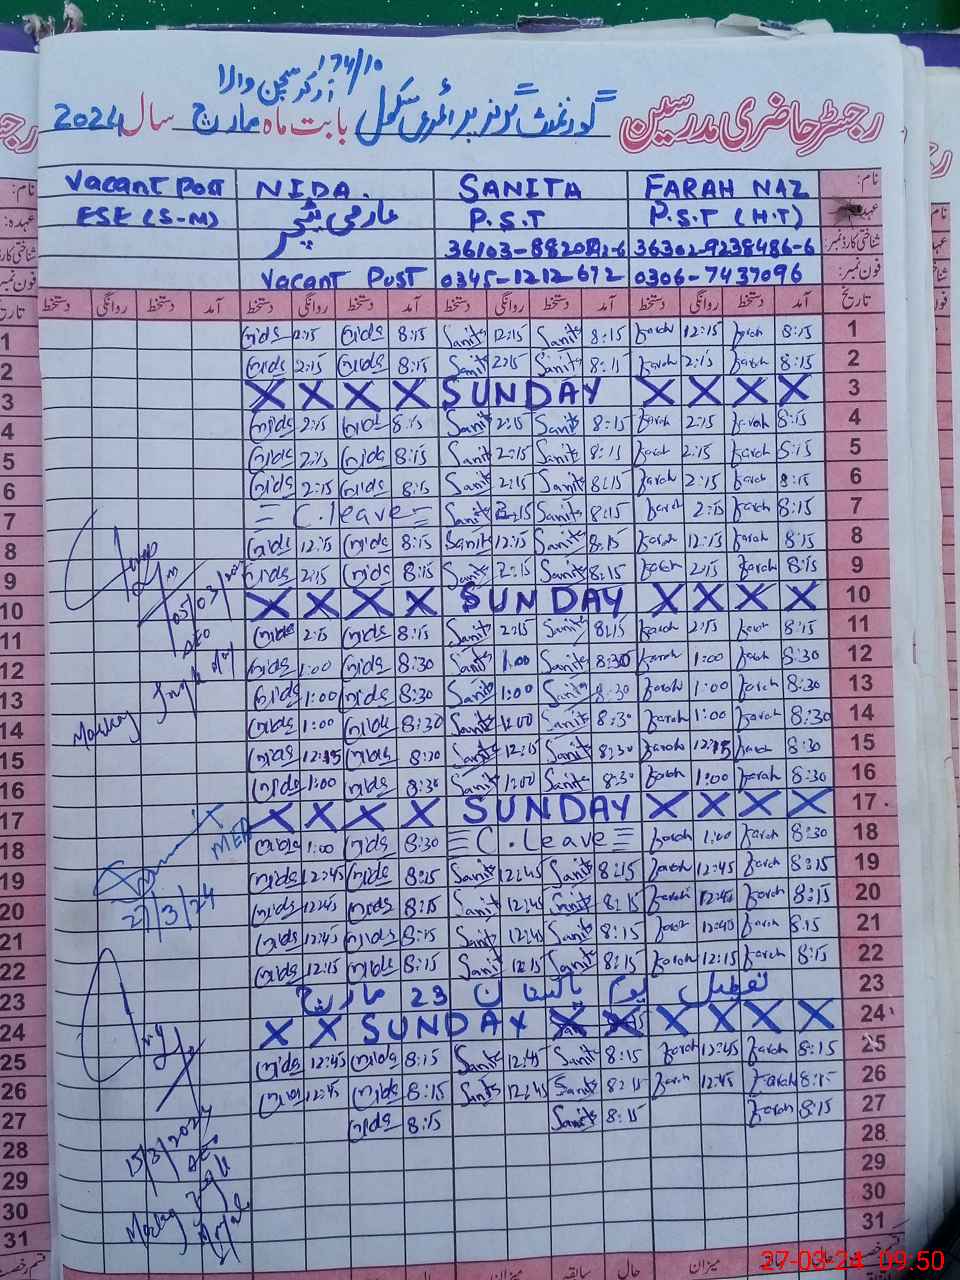 174/10
گورنمنٹ گرلز پرائمری سکول
رجسٹر حاضری مدرسین بابت ماہ مارچ سال 2024
Vacant Post NIDA. SANITA FARAH NAZ نام:
ESE (S-M) عارضی ٹیچر P.S.T P.S.T (H.T) عہدہ:
36302-9238486-6 شناختی کارڈ نمبر:
Vacant Post 0345-1212-672 0306-7437096 فون نمبر:
دستخط روانگی دستخط آمد دستخط روانگی دستخط آمد دستخط روانگی دستخط آمد دستخط روانگی دستخط آمد تاریخ
1 nida 12:15 nida 8:15 Sanita 12:15 Sanita 8:15 Farah 12:15 Farah 8:15 1
2 nida 2:15 nida 8:15 Sanita 2:15 Sanita 8:15 Farah 2:15 Farah 8:15 2
3 X X X X SUNDAY X X X X 3
4 nida 2:15 nida 8:15 Sanita 2:15 Sanita 8:15 Farah 2:15 Farah 8:15 4
5 nida 2:15 nida 8:15 Sanita 2:15 Sanita 8:15 Farah 2:15 Farah 8:15 5
6 nida 2:15 nida 8:15 Sanita 2:15 Sanita 8:15 Farah 2:15 Farah 8:15 6
7 = C.leave = Sanita 2:15 Sanita 8:15 Farah 2:15 Farah 8:15 7
8 nida 12:15 nida 8:15 Sanita 12:15 Sanita 8:15 Farah 12:15 Farah 8:15 8
9 nida 2:15 nida 8:15 Sanita 2:15 Sanita 8:15 Farah 2:15 Farah 8:15 9
10 X X X X SUNDAY X X X X 10
11 nida 2:15 nida 8:15 Sanita 2:15 Sanita 8:15 Farah 2:15 Farah 8:15 11
12 nida 1:00 nida 8:30 Sanita 1:00 Sanita 8:30 Farah 1:00 Farah 8:30 12
13 nida 1:00 nida 8:30 Sanita 1:00 Sanita 8:30 Farah 1:00 Farah 8:30 13
14 nida 1:00 nida 8:30 Sanita 1:00 Sanita 8:30 Farah 1:00 Farah 8:30 14
15 nida 12:15 nida 8:30 Sanita 12:15 Sanita 8:30 Farah 12:15 Farah 8:30 15
16 nida 1:00 nida 8:30 Sanita 1:00 Sanita 8:30 Farah 1:00 Farah 8:30 16
17 X X X X SUNDAY X X X X 17
18 nida 1:00 nida 8:30 = C.Leave = Farah 1:00 Farah 8:30 18
19 nida 12:45 nida 8:15 Sanita 12:45 Sanita 8:15 Farah 12:45 Farah 8:15 19
20 nida 12:45 nida 8:15 Sanita 12:45 Sanita 8:15 Farah 12:45 Farah 8:15 20
21 nida 12:45 nida 8:15 Sanita 12:45 Sanita 8:15 Farah 12:45 Farah 8:15 21
22 nida 12:15 nida 8:15 Sanita 12:15 Sanita 8:15 Farah 12:15 Farah 8:15 22
23 تعطیل یوم پاکستان 23 مارچ 23
24 X X SUNDAY X X X X 24
25 nida 12:45 nida 8:15 Sanita 12:45 Sanita 8:15 Farah 12:45 Farah 8:15 25
26 nida 12:45 nida 8:15 Sanita 12:45 Sanita 8:15 Farah 12:45 Farah 8:15 26
27 nida 8:15 Sanita 8:15 Farah 8:15 27
28 28
29 29
30 30
31 31
05/03/202
AEO
MEA
27/3/24
15/3/2024
AEO
میزان حال سابقہ میزان حالی
27-03-24 09:50